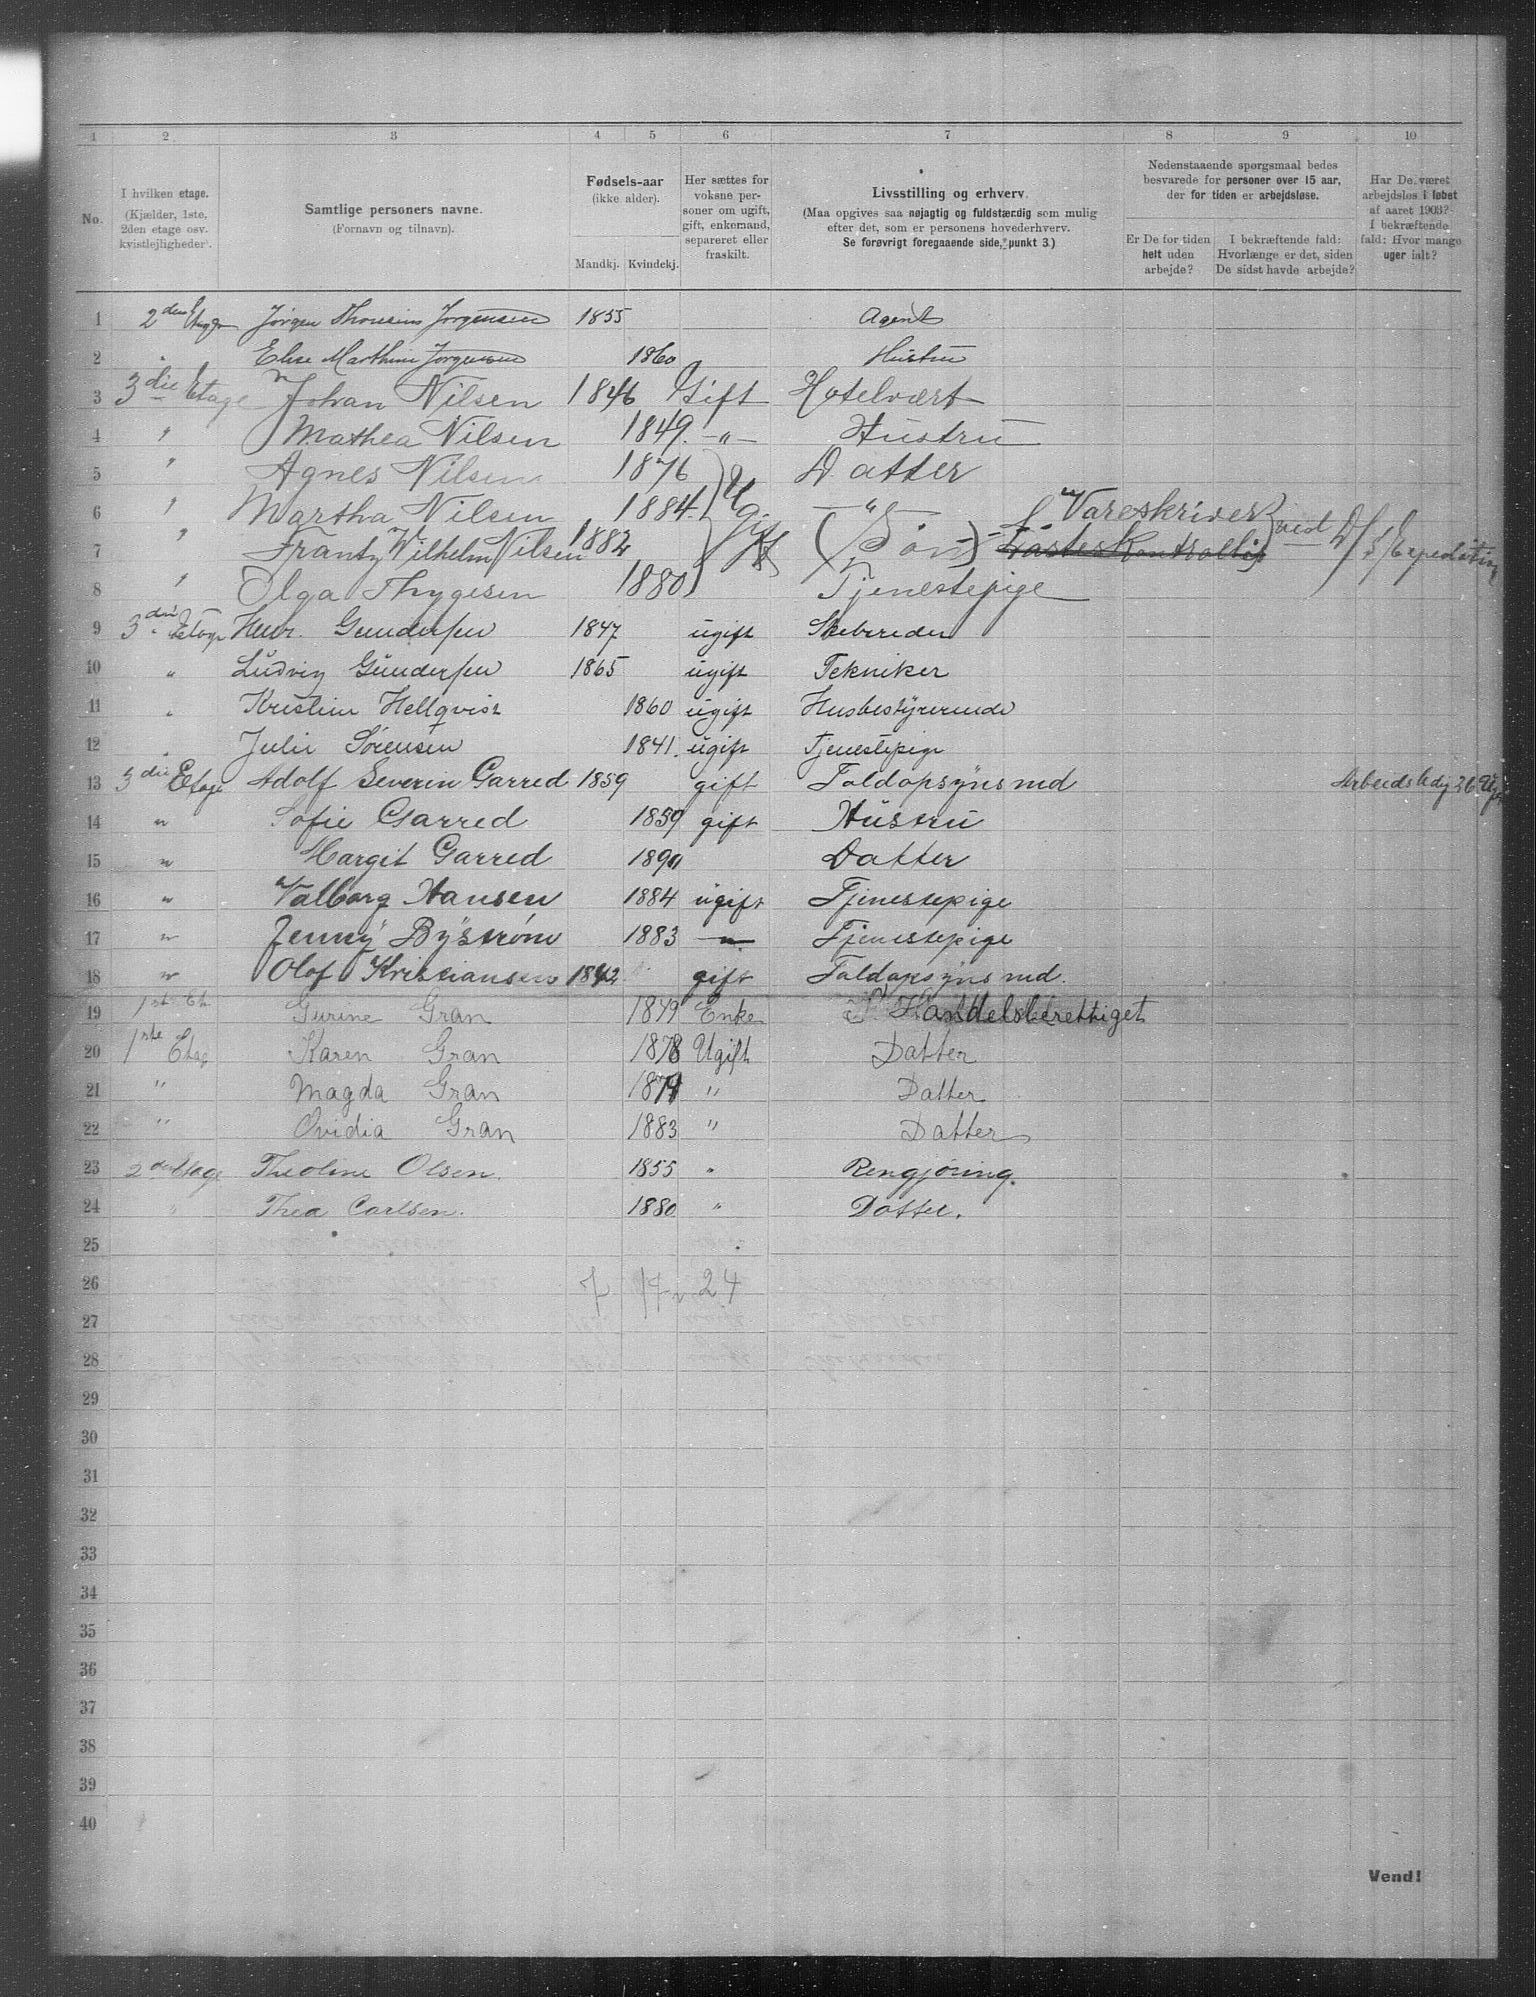 1 2 3 4 5 6 7 8 9 10
No.
I hvilken etage.
(Kjælder, 1ste,
2den etage osv.
kvistlejligheder).
Samtlige personers navne.
(Fornavn og tilnavn).
Fødsels-aar
(ikke alder).
Mandkj. Kvindekj.
Her sættes for
voksne per-
soner om ugift,
gift, enkemand,
separeret eller
fraskilt.
Livsstilling og erhverv.
(Maa opgives saa nøjagtig og fuldstændig som mulig
efter det, som er personens hovederhverv.
Se forøvrigt foregaaende side, punkt 3.)
Nedenstaaende spørgsmaal bedes
besvarede for personer over 15 aar,
der for tiden er arbejdsløse.
Er De for tiden
helt uden
arbejde?
I bekræftende fald:
Hvorlænge er det, siden
De sidst havde arbejde?
Har De været
arbejdsløs i løbet
af aaret 1903?
I bekræftende
fald: Hvor mange
uger ialt?
1 2den Etage Jørgen Jørgensen 1855 Agent
2 " Elise Marthine Jørgensen 1860 Hustru
3 3die Etage Johan Nilsen 1846 Gift Hotelvært
4 " Mathea Nilsen 1849 — " — Hustru
5 " Agnes Nilsen 1876 Datter
6 " Martha Nilsen 1884 Ugift — " — Vareskriver
7 " Frantz Wilhelm Nilsen 1882 (Søn) ved D/S Expedition
8 " Olga Thygesen 1880 Tjenestepige
9 3die Etage Gundersen 1847 ugift Skibsreder
10 " Ludvig Gundersen 1865 ugift Tekniker
11 " Kristine Hellqvist 1860 ugift Husbestyrerinde
12 " Julie Sørensen 1841 ugift Tjenestepige
13 3die Etage Adolf Severin Garred 1859 gift Toldopsynsmd Arbeidsledig 36
14 " Sofie Garred 1859 gift Hustru
15 " Margit Garred Datter
16 " Valborg Hansen 1884 ugift Tjenestepige
17 " Jenny Byström 1883 — " — Tjenestepige
18 " Olof Kristiansen gift Toldopsynsmd.
19 1st Et. Gurine Gran 1849 Enke Handelsberettiget
20 1ste Etag Karen Gran 1878 Ugift Datter
21 " Magda Gran " Datter
22 " Ovidia Gran 1883 " Datter
23 2den Etage Theoline Olsen. 1855 " Rengjøring.
24 " Thea Carlsen. 1880 " Datter.
25
26 7 17 24
27
28
29
30
31
32
33
34
35
36
37
38
39
40
Vend!